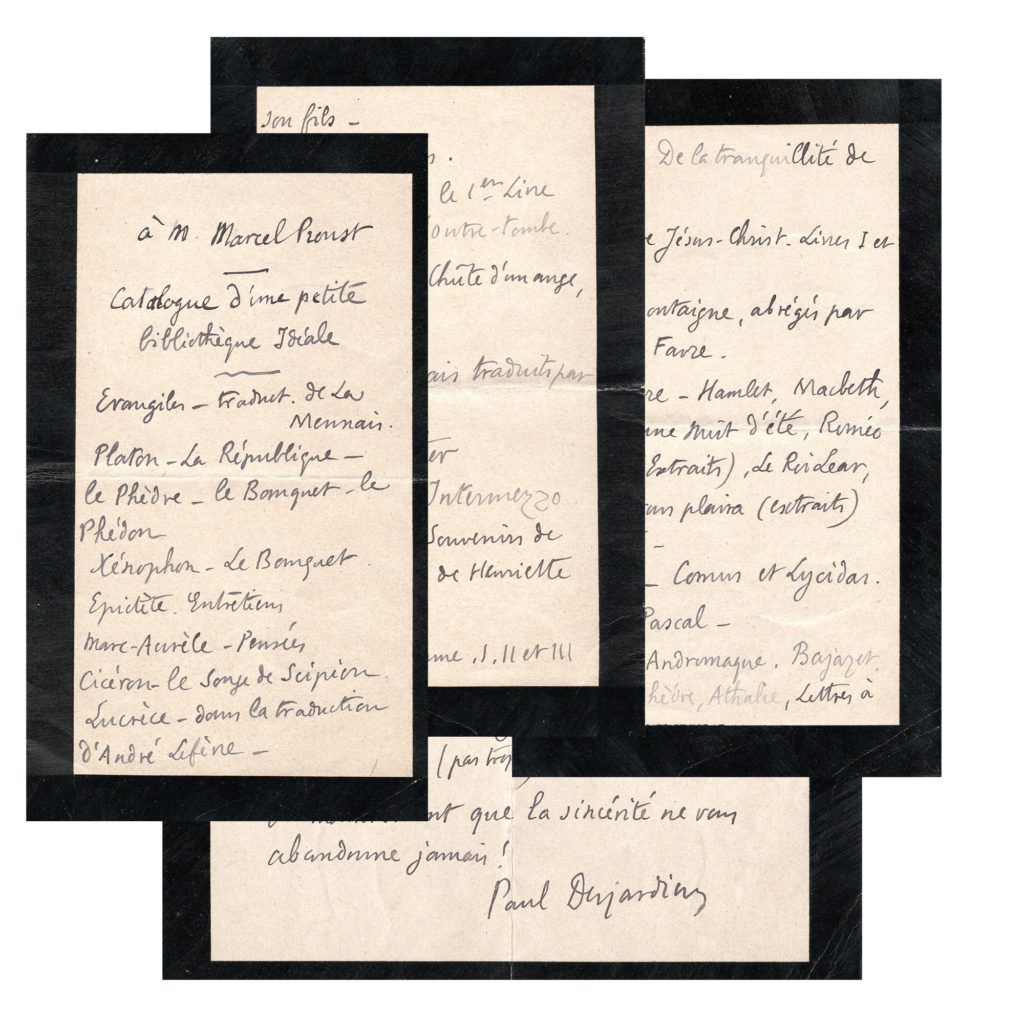 à M. Marcel Proust
Catalogue d'une petite
bibliothèque Idéale
Evangiles – traduct. de La
Mennais.
Platon – La République –
le Phèdre – le Banquet – le
Phédon
Xénophon – Le Banquet.
Epictète. Entretiens
Marc-Aurèle – Pensées
Cicéron – le Songe de Scipion.
Lucrèce – dans la traduction
d'André Lefèvre –
son fils –
s.
le 1er Livre
outre-tombe.
Chûte d'un ange,
ais traduits par
Intermezzo
Souvenirs de
de Henriette
me. I, II et III
De la tranquillité de
e Jésus-Christ. Livres I et
ontaigne, abrégés par
Favre.
re – Hamlet, Macbeth,
une Nuit d'été, Roméo
Extraits), Le Roi Lear,
ous plaira (extraits)
–
– Comus et Lycidas.
Pascal –
Andromaque. Bajazet.
hèdre, Athalie, Lettres à
(pas trop
nt que la sincérité ne vous
abandonne jamais !
Paul Desjardins